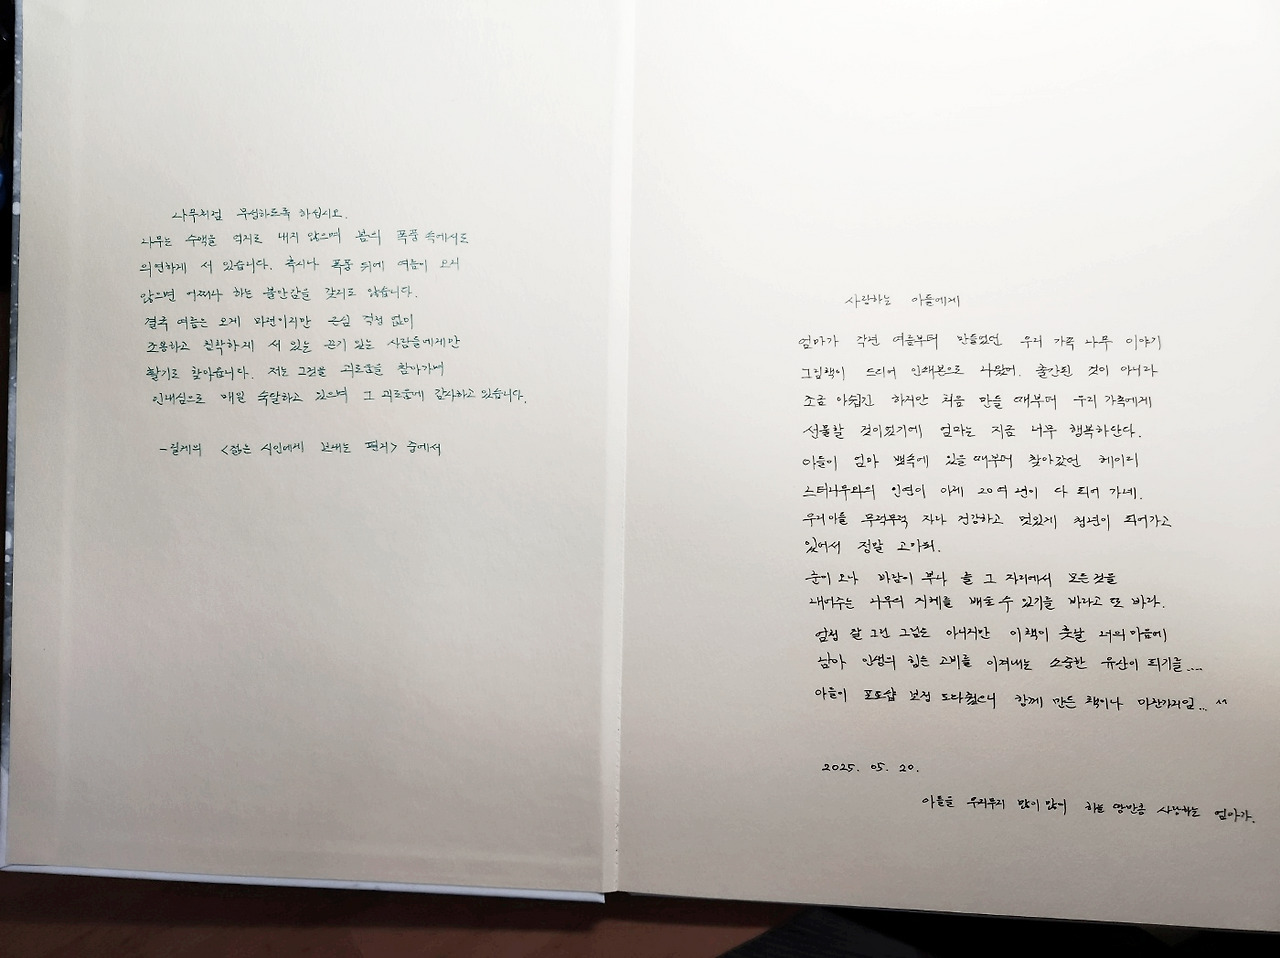 나무처럼 무성하도록 하십시오.
나무는 수액을 억지로 내지 않으며 봄의 폭풍 속에서도
의연하게 서 있습니다. 혹시나 폭풍 뒤에 여름이 오지
않으면 어쩌나 하는 불안감을 갖지도 않습니다.
결국 여름은 오게 마련이지만 근심 걱정 없이
조용하고 침착하게 서 있는 끈기 있는 사람들에게만
활기로 찾아옵니다. 저는 그것을 괴로움을 참아가며
인내심으로 매일 숙달하고 있으며 그 괴로움에 감사하고 있습니다.
-릴케의 <젊은 시인에게 보내는 편지> 중에서
사랑하는 아들에게
엄마가 작년 여름부터 만들었던 우리 가족 나무 이야기
그림책이 드디어 인쇄본으로 나왔어. 출간된 것이 아니라
조금 아쉽긴 하지만 처음 만들 때부터 우리 가족에게
선물할 것이었기에 엄마는 지금 너무 행복하단다.
아들이 엄마 뱃속에 있을 때부터 찾아갔던 헤이리
느티나무와의 인연이 이제 20여 년이 다 되어 가네.
우리아들 무럭무럭 자라 건강하고 멋있게 청년이 되어가고
있어서 정말 고마워.
눈이 오나 바람이 부나 늘 그 자리에서 모든 것을
내어주는 나무의 지혜를 배울 수 있기를 바라고 또 바라.
엄청 잘 그린 그림은 아니지만 이 책이 훗날 너의 마음에
남아 인생의 힘든 고비를 이겨내는 소중한 유산이 되기를....
아들이 포토샵 보정 도와줬으니 함께 만든 책이나 마찬가지임... ^^
2025. 05. 20.
아들을 우주무지 많이 많이 하늘 땅만큼 사랑하는 엄마가.